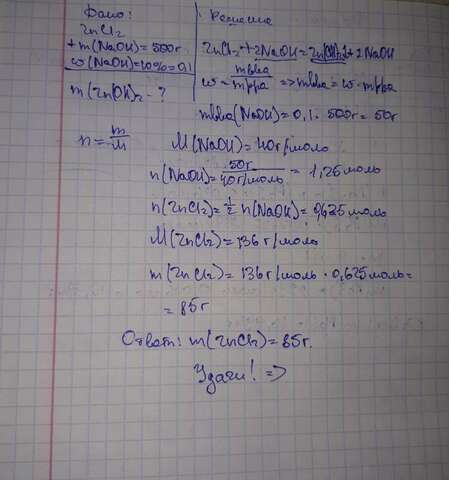 Дано:
ZnCl2
+ m(NaOH) = 500г
ω(NaOH) = 10% = 0,1
m(Zn(OH)2 - ?
n = m/M
Решение
ZnCl2 + 2NaOH = Zn(OH)2↓ + 2NaOH
ω = mвва/mрра => mвва = ω · mрра
mвва(NaOH) = 0,1 · 500г = 50г
M(NaOH) = 40г/моль
n(NaOH) = 50г/40г/моль = 1,25 моль
n(ZnCl2) = 1/2 n(NaOH) = 0,625 моль
M(ZnCl2) = 136 г/моль
m(ZnCl2) = 136 г/моль · 0,625 моль =
= 85г
Ответ: m(ZnCl2) = 85г.
Удачи! =>